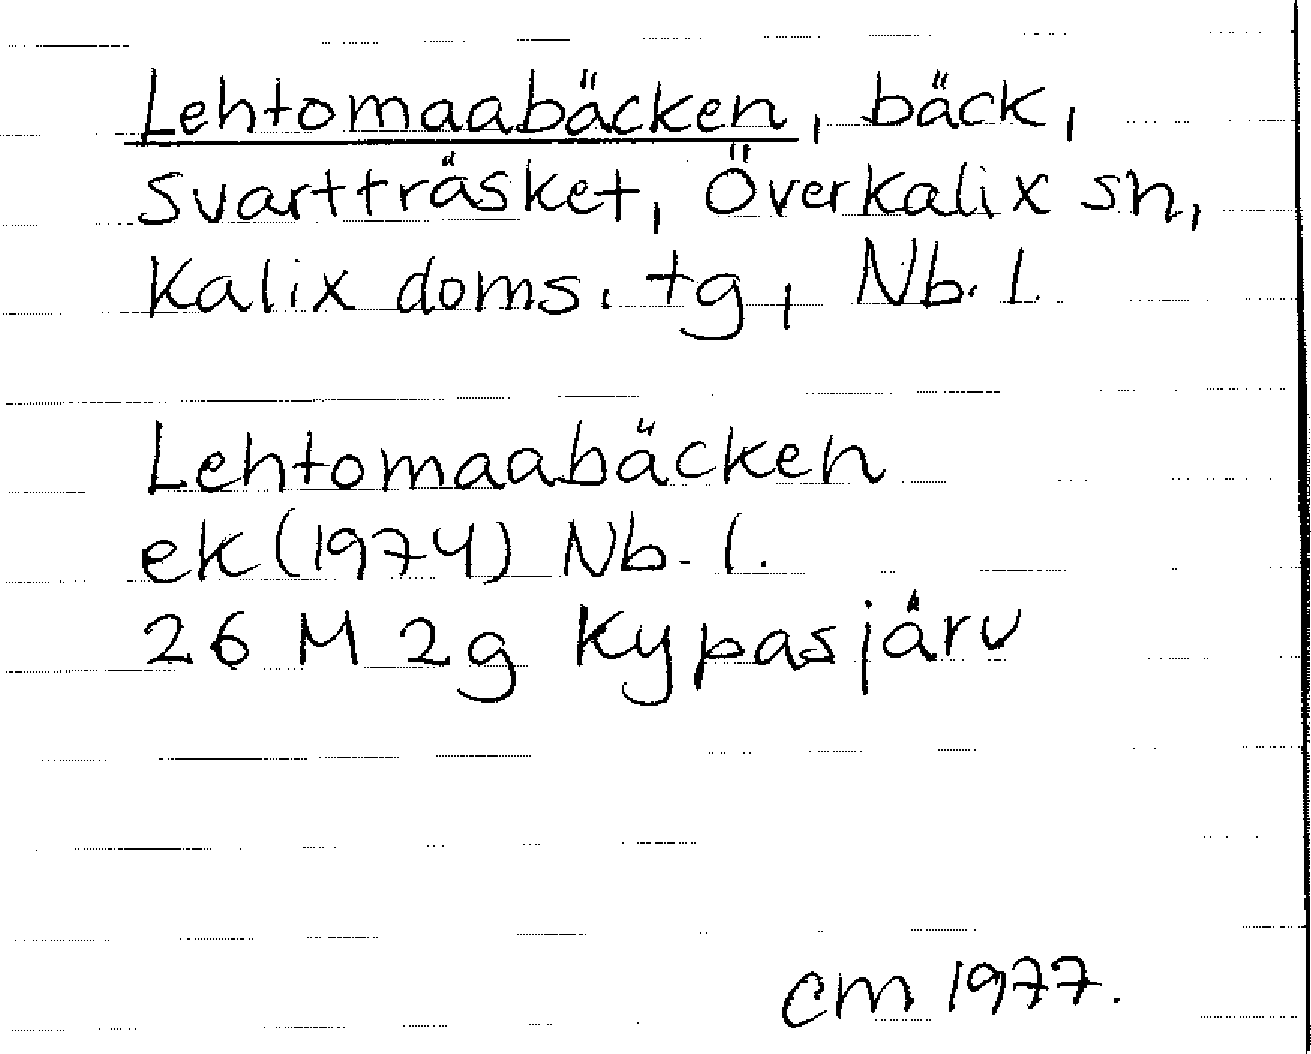 Lehtomaabäcken, bäck,
Svartträsket, Överkalix sn,
Kalix doms. tg, Nb. l.
Lehtomaabäcken
ek (1974) Nb. l.
26 M 2g Kypasjärv
cm 1977.